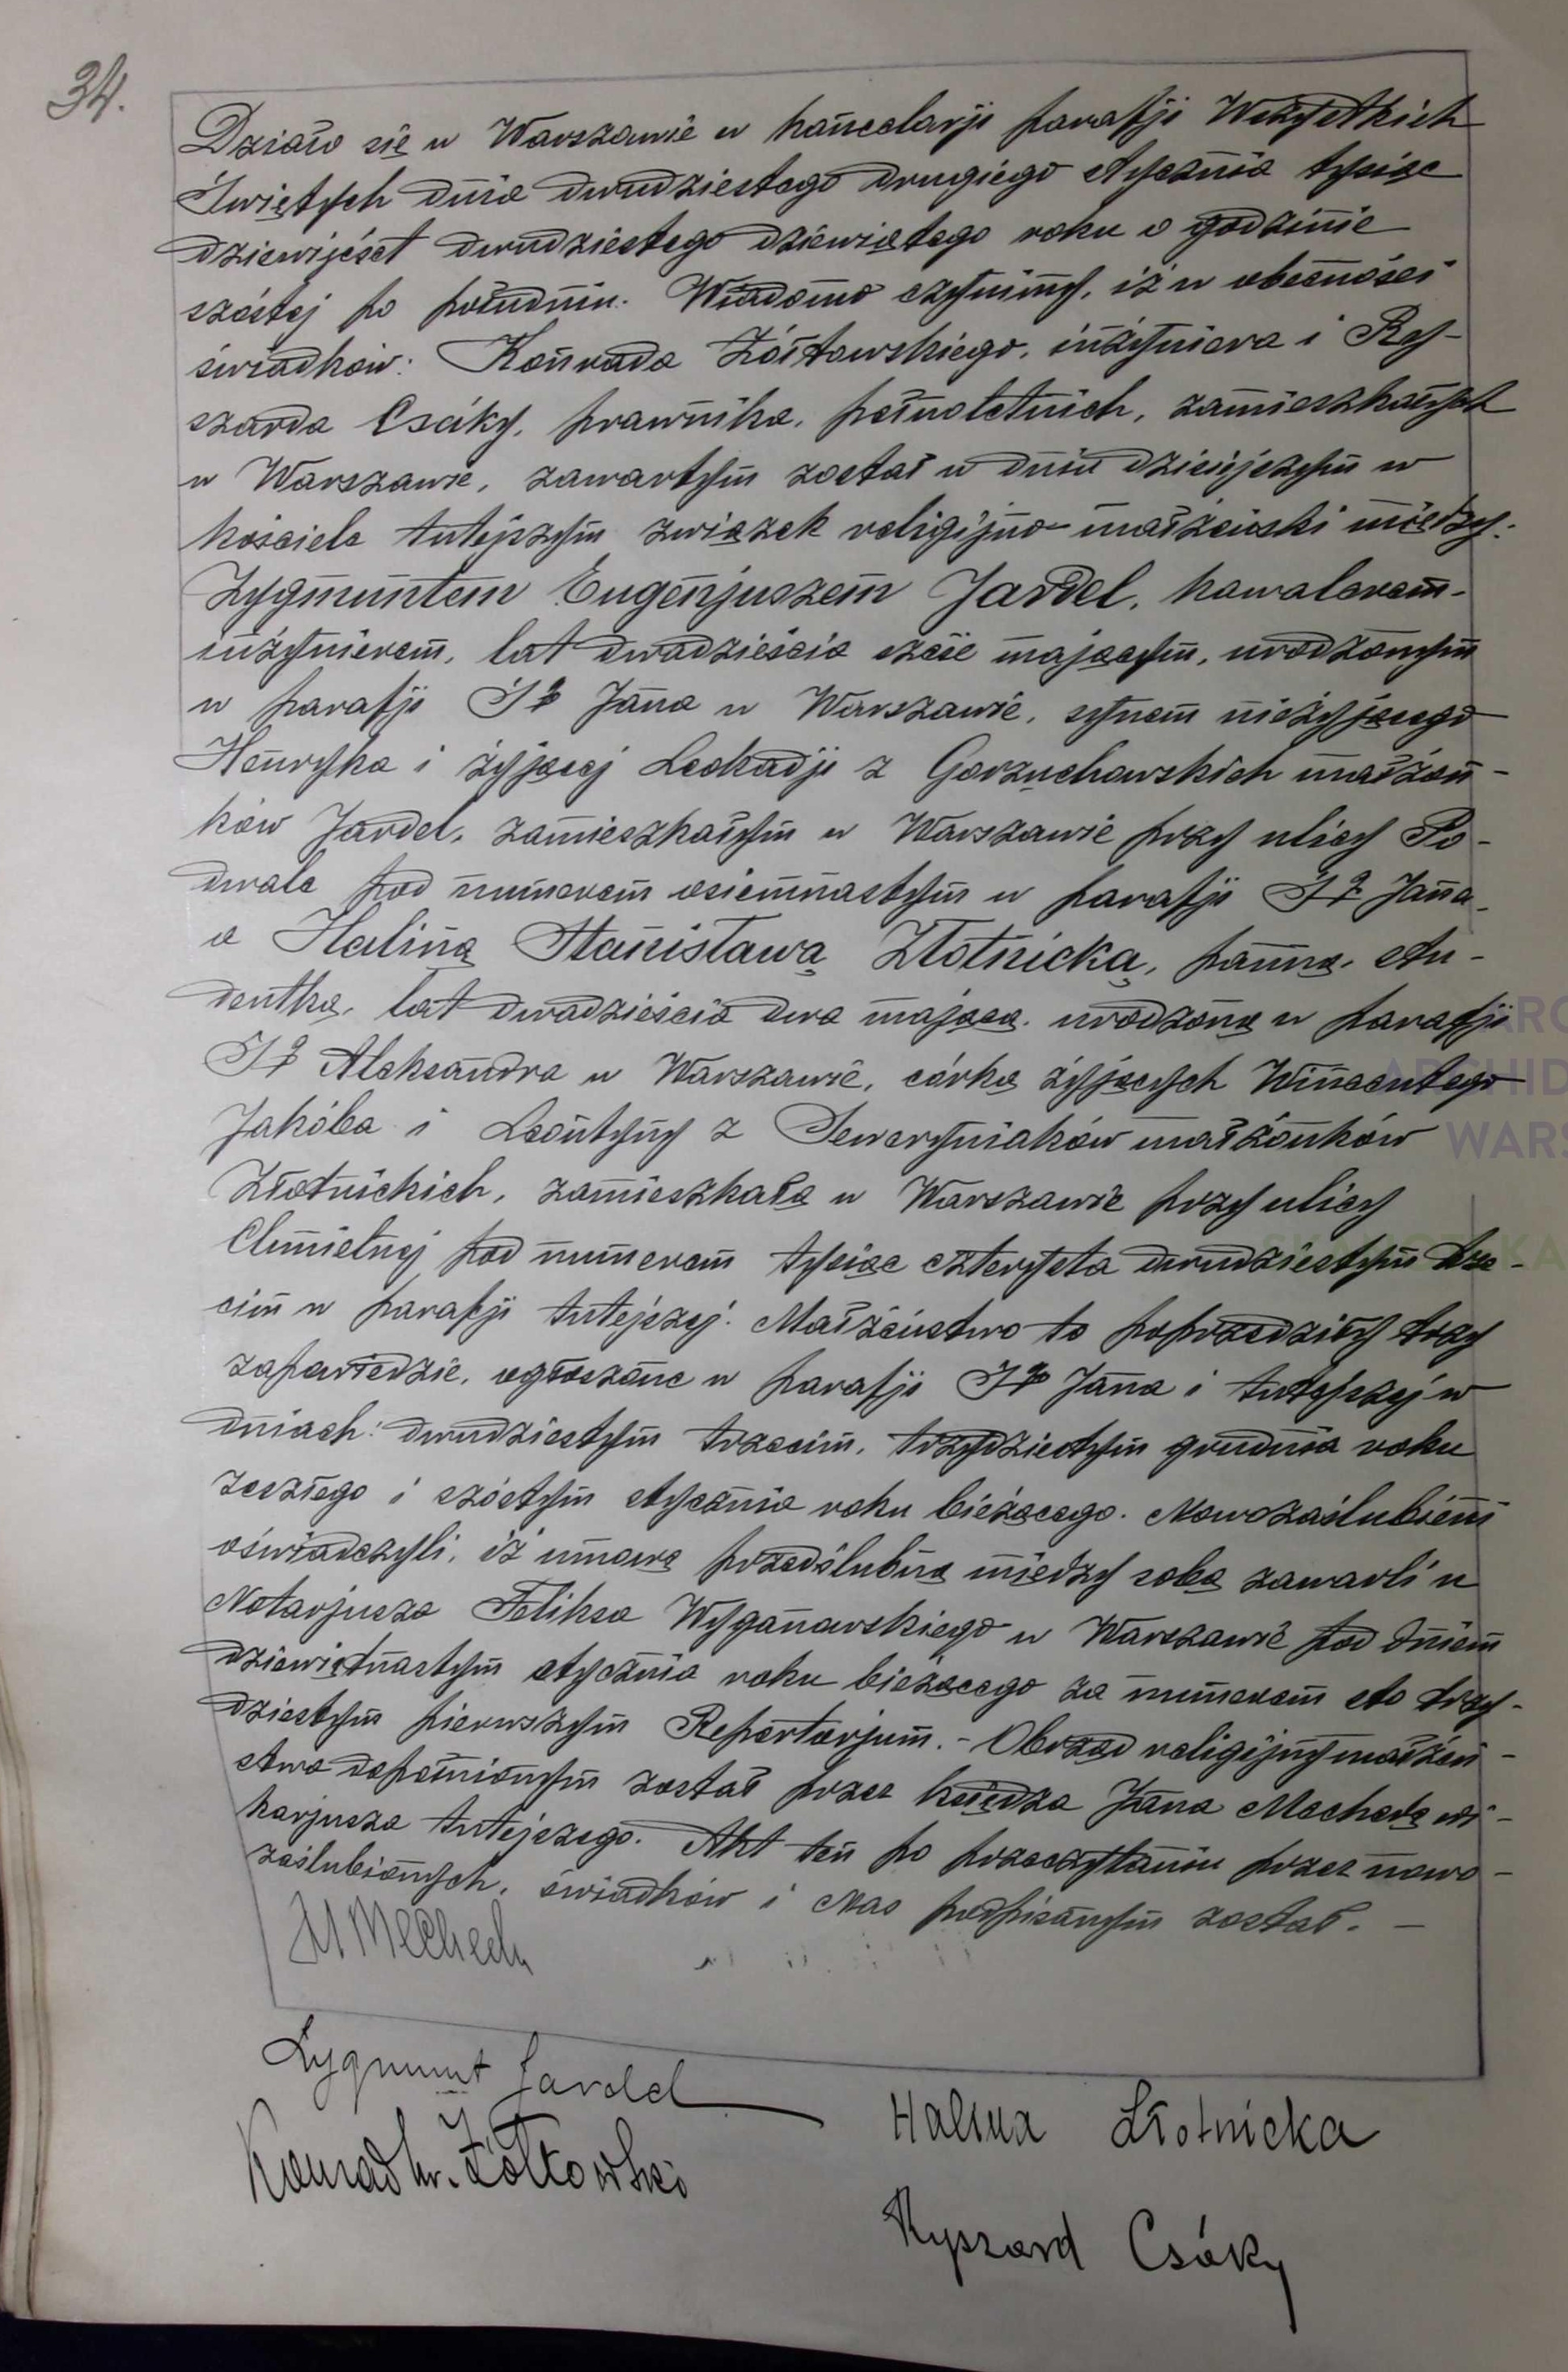 34.
Działo się w Warszawie w kancelarji parafji Wszystkich
Świętych dnia dwudziestego drugiego stycznia tysiąc
dziewięćset dwudziestego dziewiątego roku o godzinie
szóstej po południu. Wiadomo czynimy, iż w obecności
świadków: Konrada Żółtowskiego, inżyniera i Ry-
szarda Csáky, prawnika, pełnoletnich, zamieszkałych
w Warszawie, zawartym został w dniu dzisiejszym w
kościele tutejszym związek religijno-małżeński między:
Zygmuntem Eugenjuszem Jardel, kawalerem-
inżynierem, lat dwadzieścia sześć mającym, urodzonym
w parafji Śgo Jana w Warszawie, synem nieżyjącego
Henryka i żyjącej Leokadji z Gorzuchowskich małżon-
ków Jardel, zamieszkałym w Warszawie przy ulicy Po-
dwale pod numerem osiemnastym w parafji Śgo Jana,
a Haliną Stanisławą Złotnicką, panną, stu-
dentką, lat dwadzieścia dwa mającą, urodzoną w parafji
Śgo Aleksandra w Warszawie, córką żyjących Wincentego
Jakóba i Leontyny z Seweryniaków małżonków
Złotnickich, zamieszkałą w Warszawie przy ulicy
Chmielnej pod numerem tysiąc czterysta dwudziestym trze-
cim w parafji tutejszej. Małżeństwo to poprzedziły trzy
zapowiedzie, ogłoszone w parafji Śgo Jana i tutejszej w
dniach: dwudziestym trzecim, trzydziestym grudnia roku
zeszłego i szóstym stycznia roku bieżącego. Nowozaślubieni
oświadczyli, iż umowę przedślubną między sobą zawarli u
Notarjusza Feliksa Wyganowskiego w Warszawie pod dniem
dziewiętnastym stycznia roku bieżącego za numerem sto trzy-
dziestym pierwszym Repertorjum.- Obrzęd religijny małżeń-
stwa dopełnionym został przez księdza Jana Mechedę wi-
karjusza tutejszego. Akt ten po przeczytaniu przez nowo-
zaślubionych, świadków i Nas podpisanym został. -
Zygmunt Jardel
Halina Złotnicka
Konrad hr. Żółtowski
Ryszard Csáky